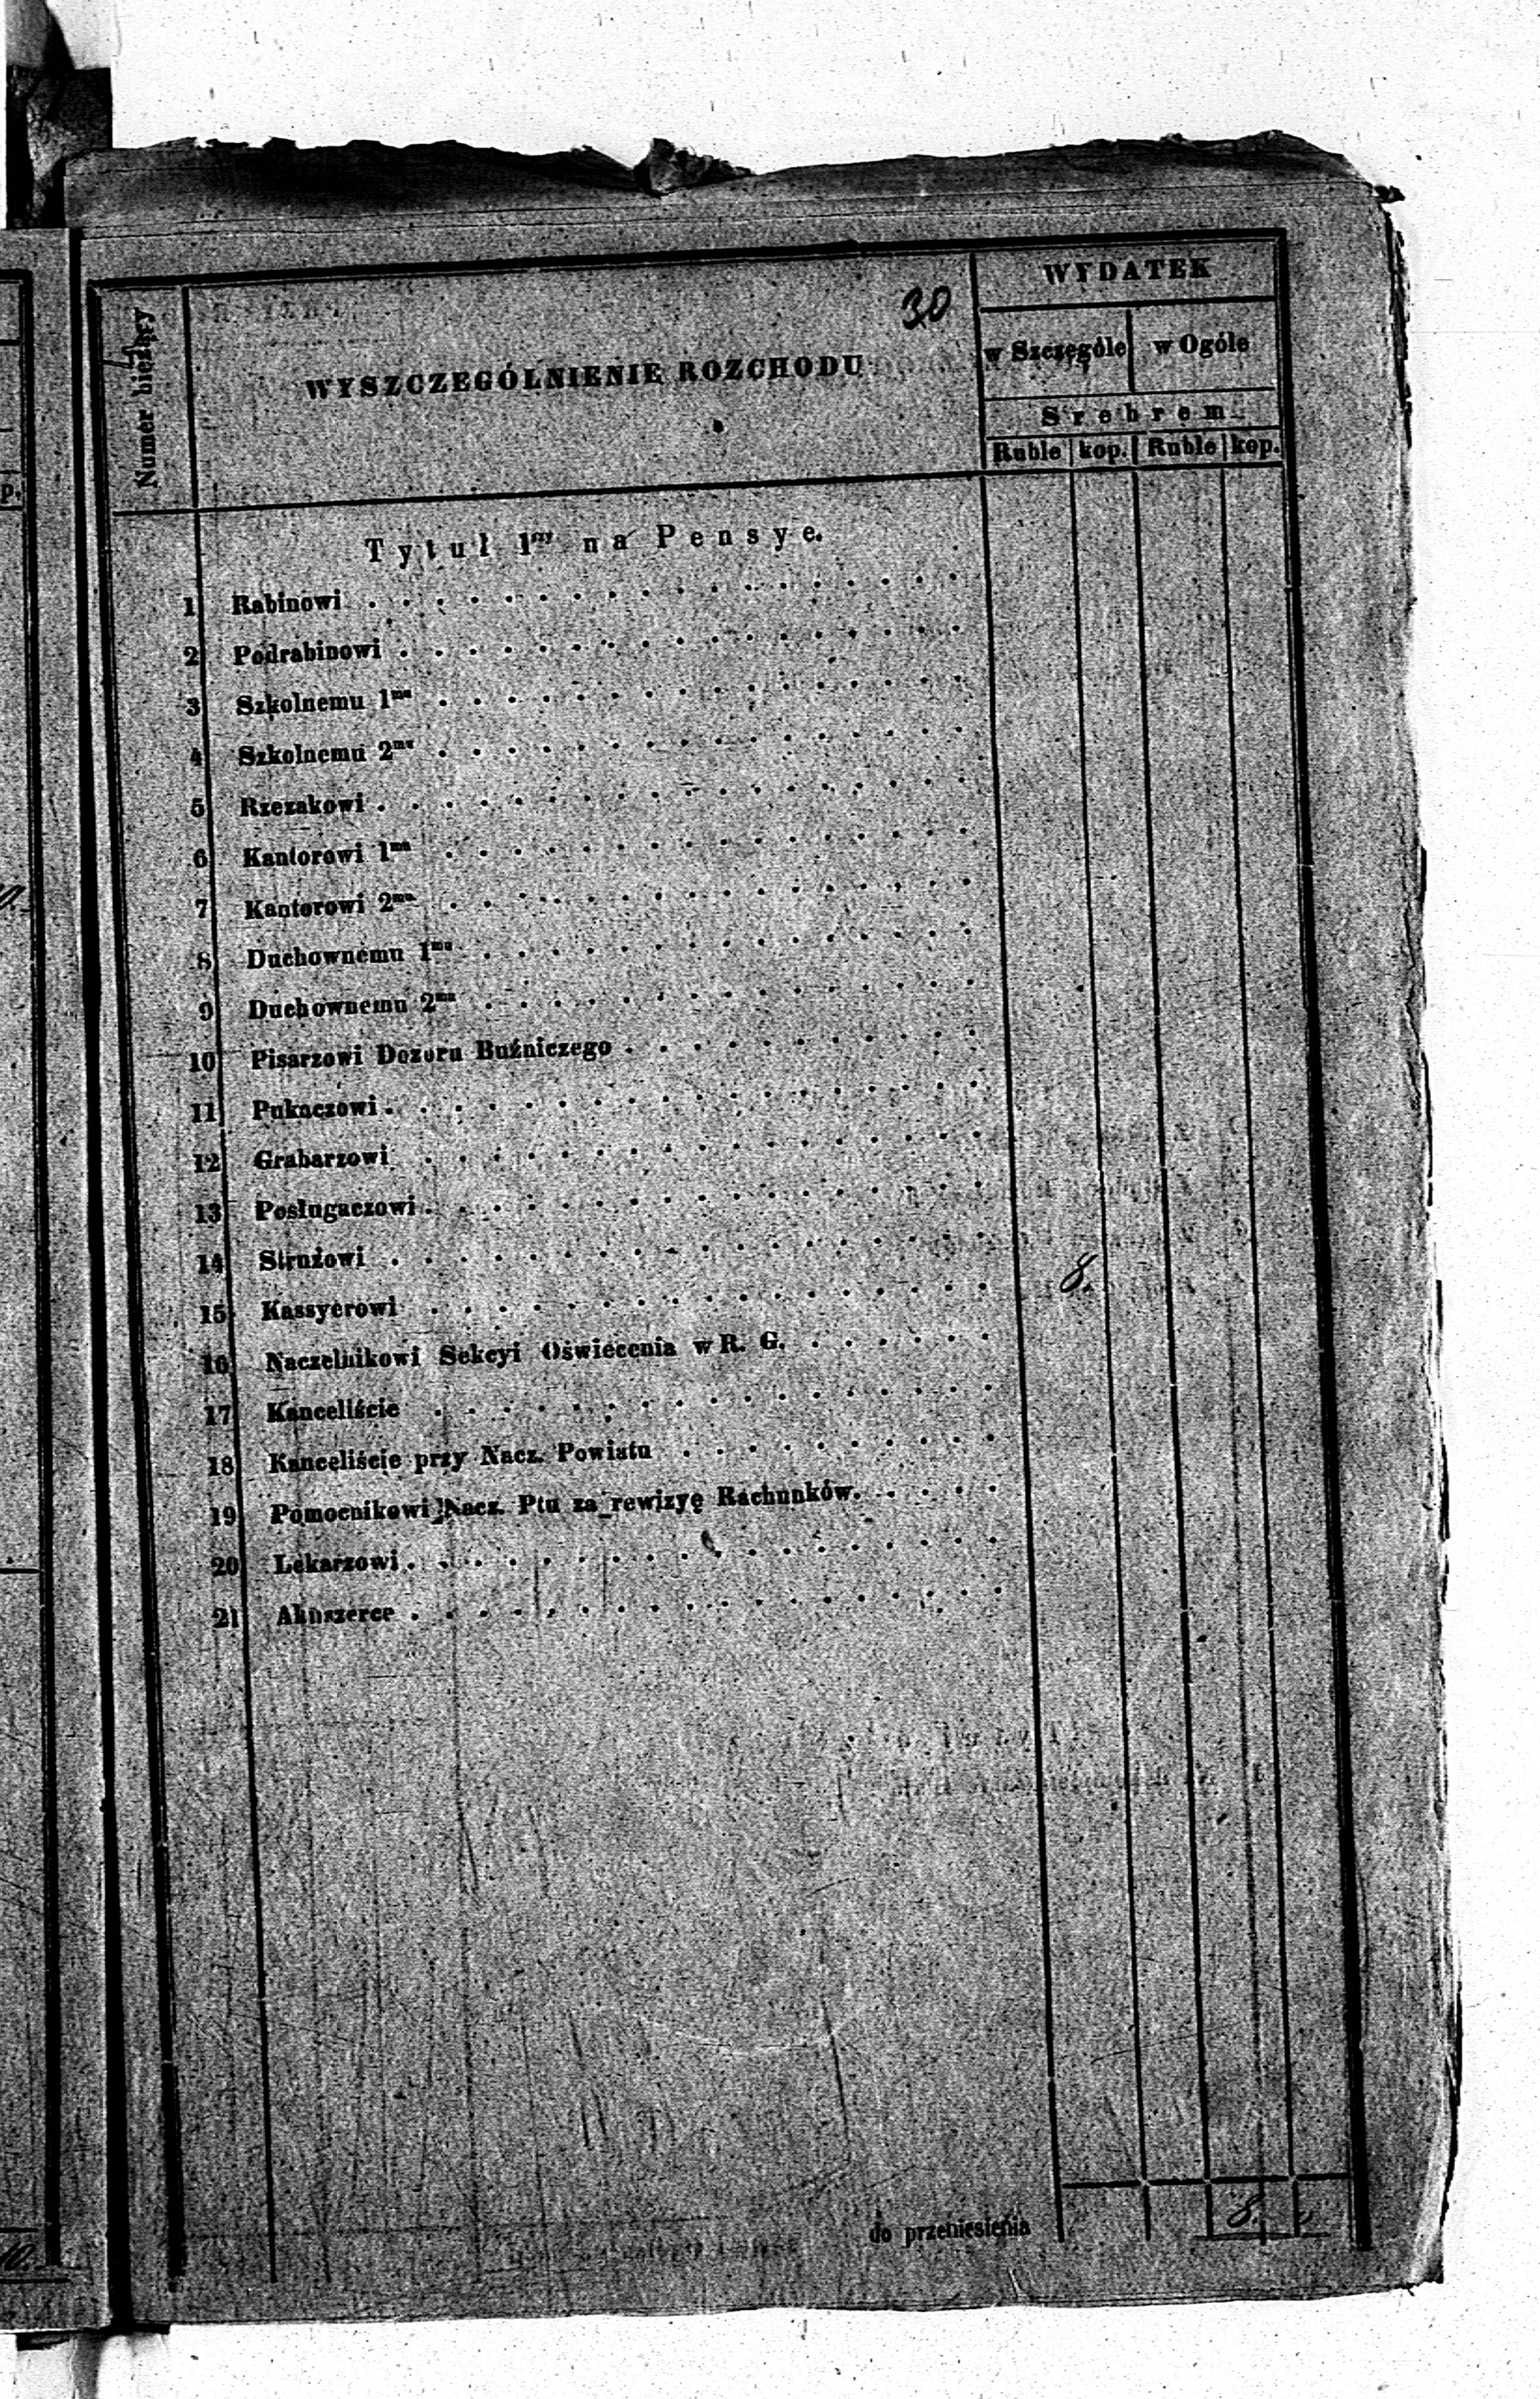 30
Numer bieżący
WYSZCZEGÓLNIENIE ROZCHODU
WYDATEK
w Szczególe w Ogóle
Srebrem
Ruble kop. Ruble kop.
p.
Tytuł 1ny na Pensye.
1 Rabinowi
2 Podrabinowi
3 Szkolnemu 1mu
4 Szkolnemu 2mu
5 Rzezakowi
6 Kantorowi 1mu
7 Kantorowi 2mu
8 Duchownemu 1mu
9 Duchownemu 2mu
10 Pisarzowi Dozoru Buźniczego
11 Pukaczowi
12 Grabarzowi
13 Posługaczowi
14 Stróżowi
15 Kassyerowi 8.
16 Naczelnikowi Sekcyi Oświecenia w R. G.
17 Kanceliście
18 Kanceliście przy Nacz. Powiatu
19 Pomocnikowi Nacz. Ptu za rewizyę Rachunków.
20 Lekarzowi
21 Akuszerce
do przeniesienia 8.